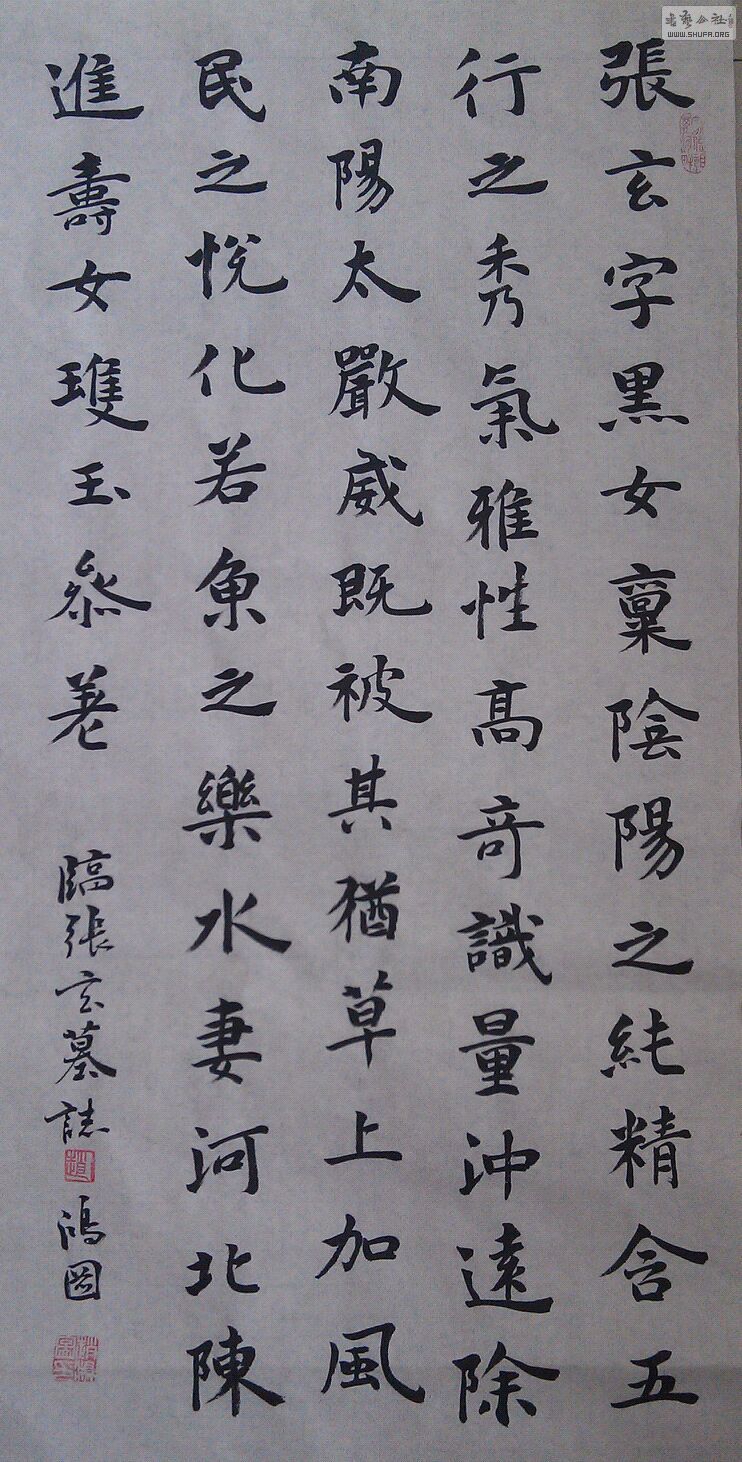 張玄字黑女稟陰陽之純精含五
行之秀氣雅性高奇識量沖遠除
南陽太嚴威既被其猶草上加風
民之悅化若魚之樂水妻河北陳
進壽女雙玉叅差
臨張玄墓誌
趙
鴻圖
書藝公社
WWW.SHUFA.ORG